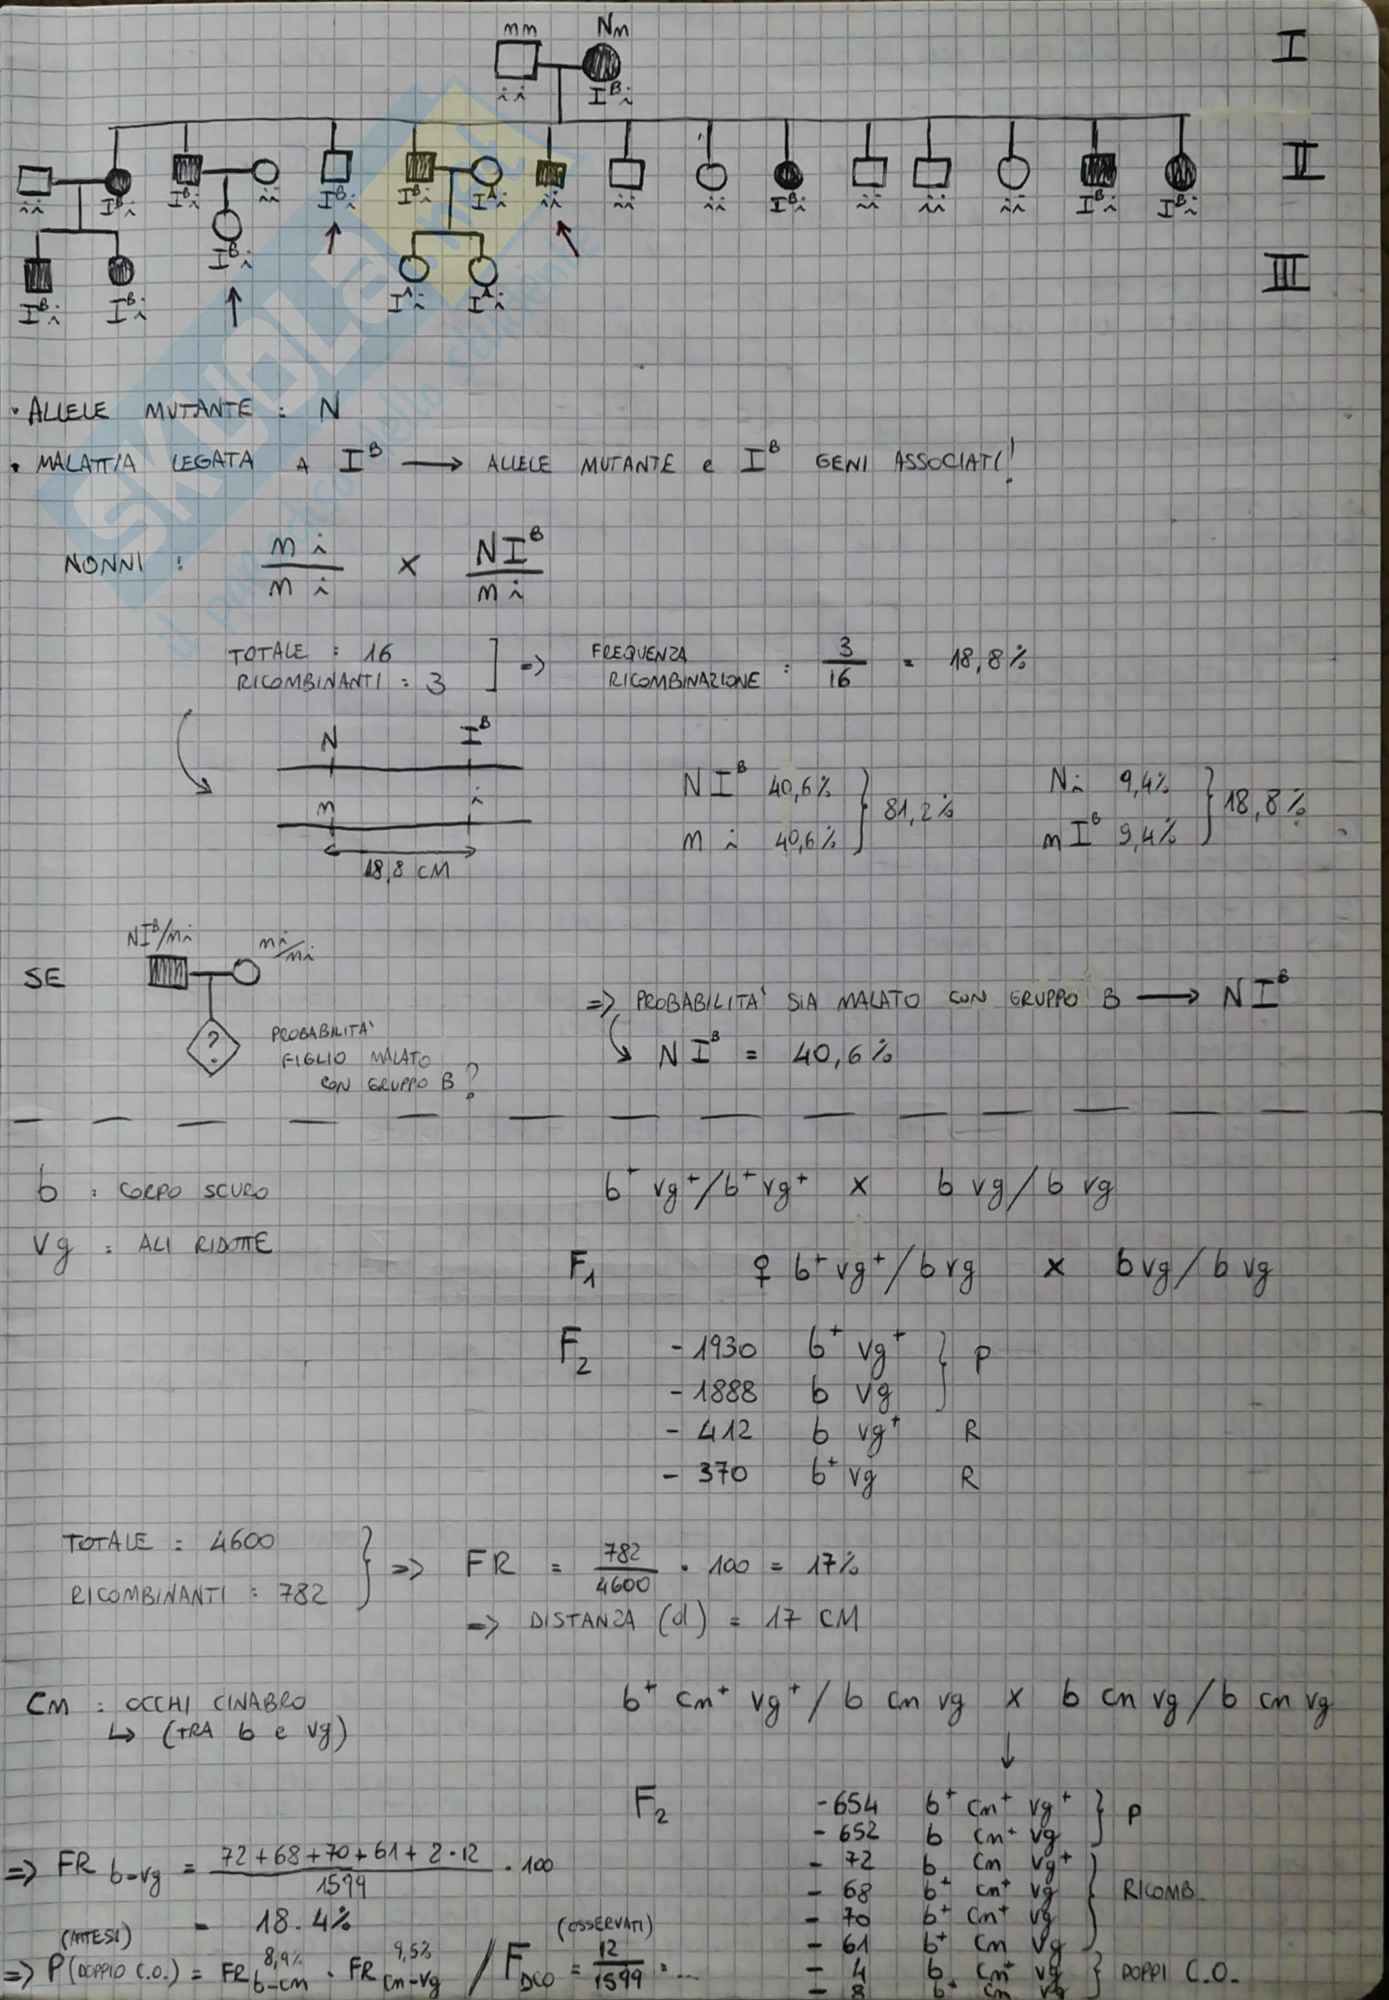 mm Nm I
ii I^B i
II
ii I^B i I^B i ii I^B i I^B i I^A i ii ii ii I^B i ii ii ii I^B i I^B i
III
I^B i
I^B i I^B i I^A i I^A i
SKUOLA.net
• ALLELE MUTANTE : N
• MALATTIA LEGATA A I^B → ALLELE MUTANTE e I^B GENI ASSOCIATI!
NONNI : m i / m i × N I^B / m i
TOTALE : 16
RICOMBINANTI : 3 ] => FREQUENZA RICOMBINAZIONE : 3/16 = 18,8%
N I^B
m i
18,8 CM
N I^B 40,6%
m i 40,6% } 81,2%
N i 9,4%
m I^B 9,4% } 18,8%
SE NI^B/mi mi/mi
?
PROBABILITA' FIGLIO MALATO CON GRUPPO B?
=> PROBABILITA' SIA MALATO CON GRUPPO B → N I^B
N I^B = 40,6%
b : CORPO SCURO b⁺ vg⁺/b⁺ vg⁺ × b vg/b vg
vg : ALI RIDOTTE
F₁ ♀ b⁺ vg⁺/b vg × b vg/b vg
F₂ - 1930 b⁺ vg⁺
- 1888 b vg } P
- 412 b vg⁺ R
- 370 b⁺ vg R
TOTALE : 4600
RICOMBINANTI : 782 } => FR = 782/4600 · 100 = 17%
=> DISTANZA (d) = 17 CM
Cm : OCCHI CINABRO b⁺ cm⁺ vg⁺ / b cm vg × b cm vg / b cm vg
↳ (TRA b e vg)
↓
F₂ - 654 b⁺ cm⁺ vg⁺
- 652 b cm⁺ vg } P
- 72 b cm vg⁺
- 68 b⁺ cm⁺ vg
- 70 b⁺ cm⁺ vg
- 61 b⁺ cm vg } RICOMB.
- 4 b cm⁺ vg
- 8 b⁺ cm vg } DOPPI C.O.
=> FR b-vg = 72+68+70+61+2·12 / 1599 · 100
= 18.4%
(ATTESI) (OSSERVATI)
=> P(DOPPIO C.O.) = FR b-cm 8,9% · FR cm-vg 9,5% / F DCO = 12/1599 = ...